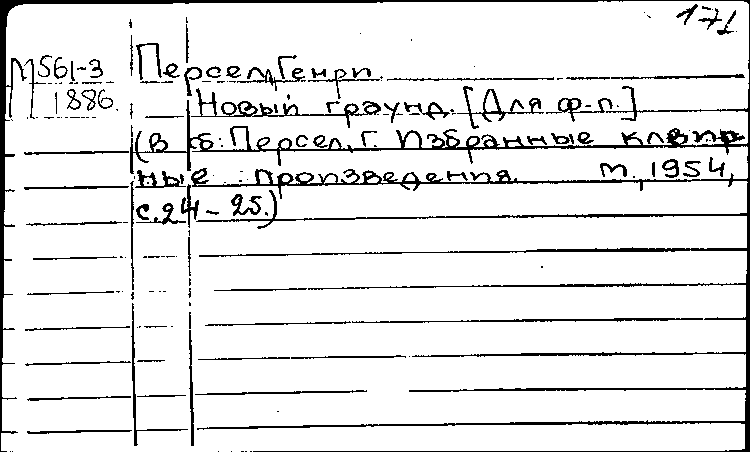 171
М561-3 Персел, Генри
1886. Новый граунд. [Для ф-п.]
(В сб: Персел, Г. Избранные клавир
ные произведения. М., 1954,
с. 24 - 25.)